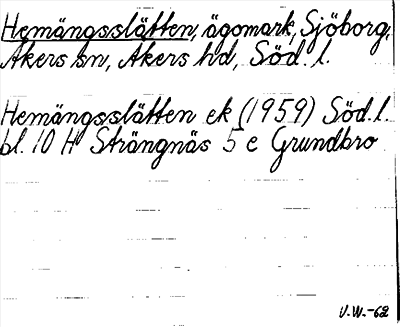 Hemängsslätten, ägomark, Sjöborg,
Åkers sn, Åkers hd, Söd. l.
Hemängsslätten ek (1959) Söd. l.
bl. 10 H Strängnäs 5 e Grundbro
V.W.-62